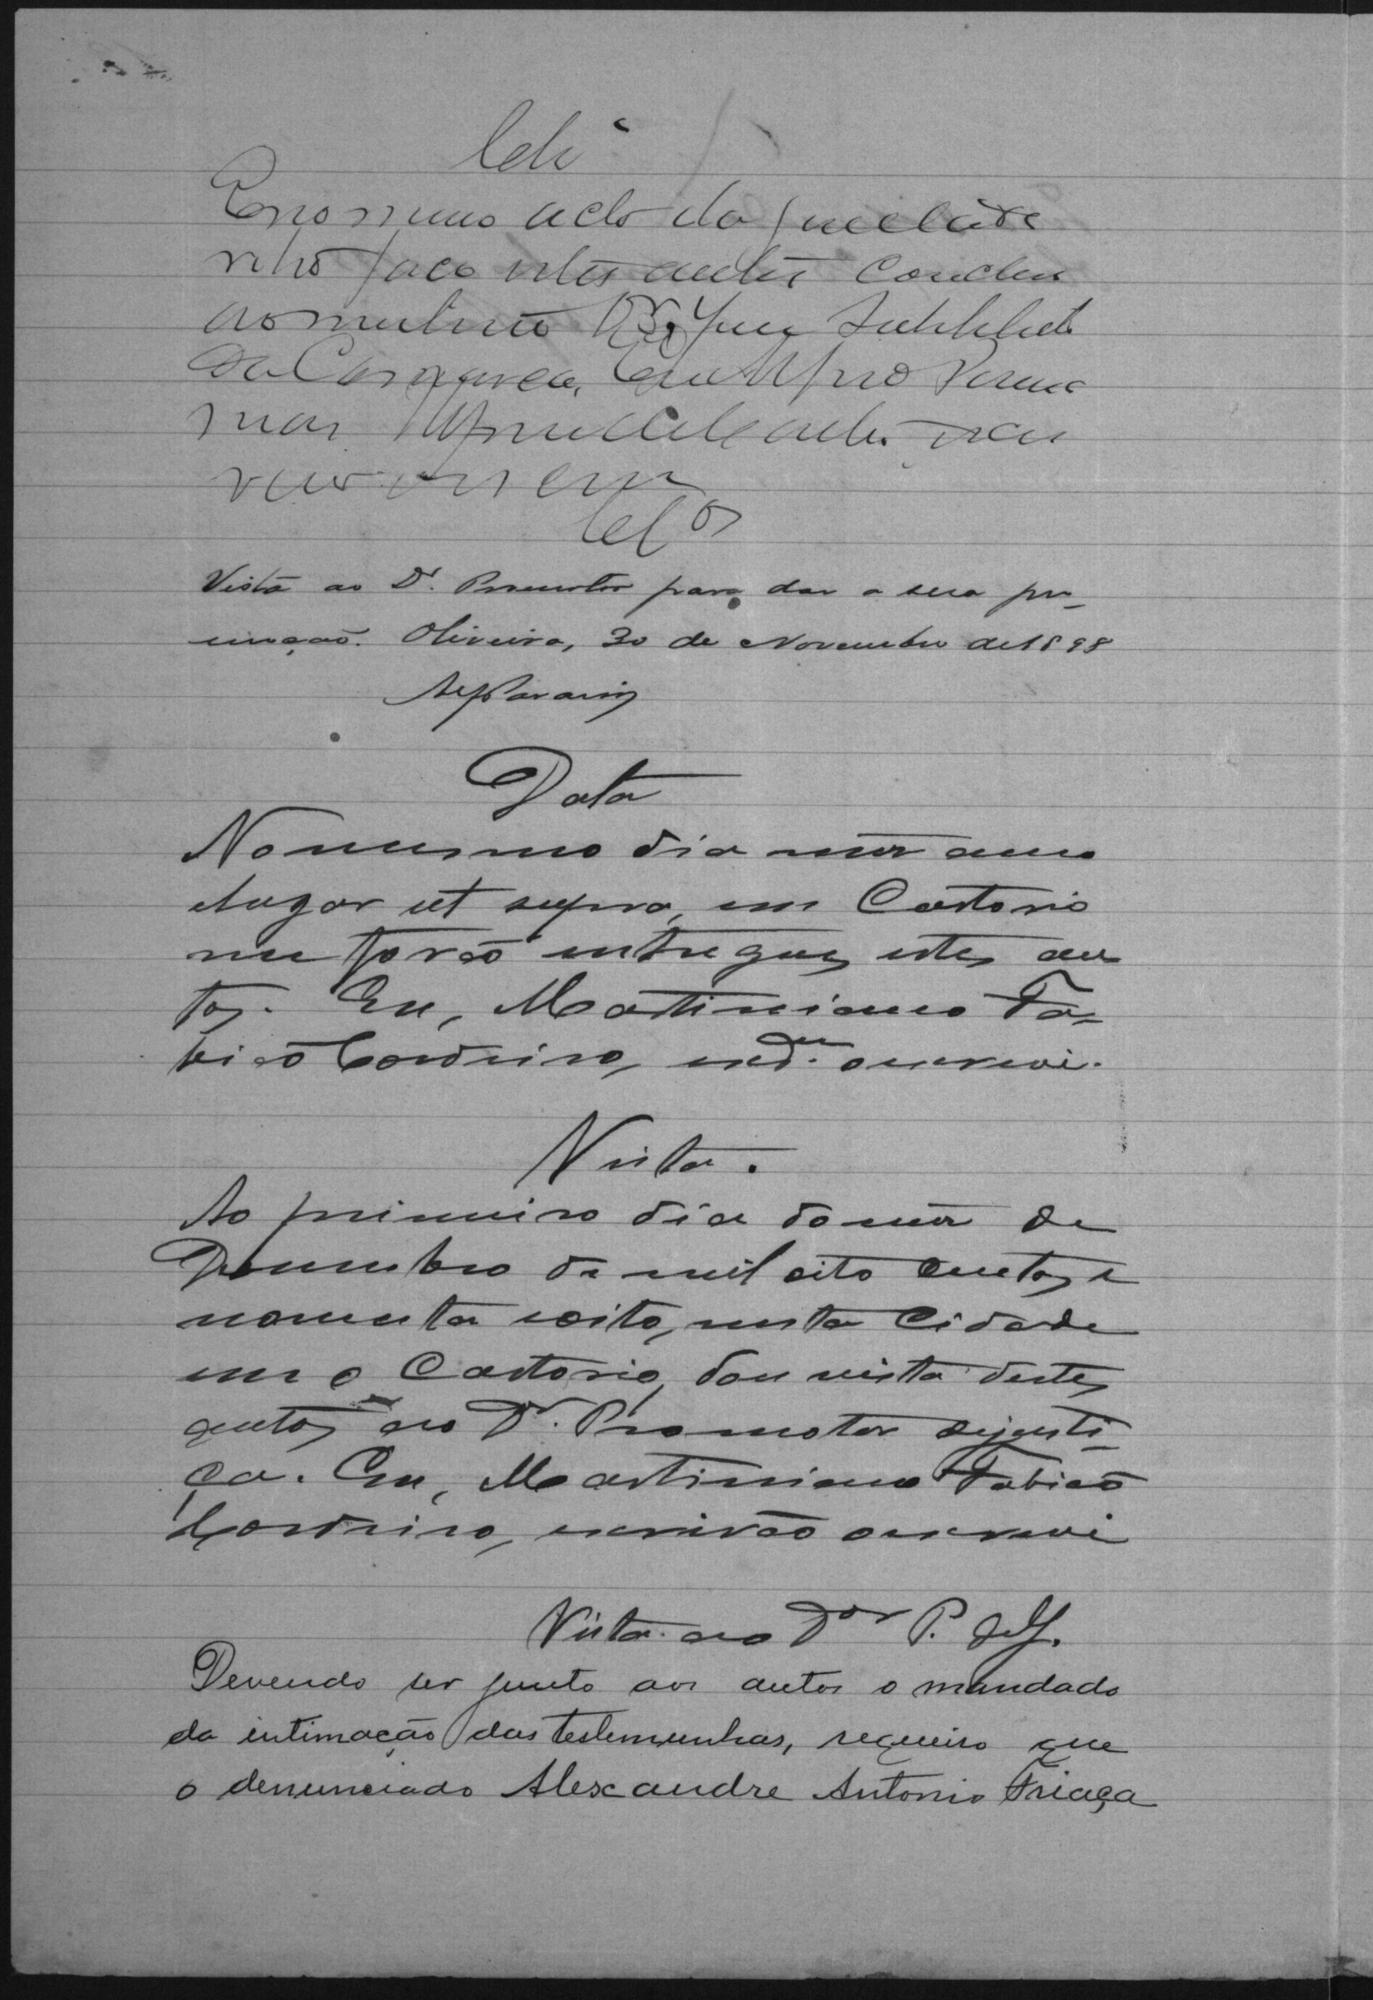 Cls
E no mesmo acto da
faço estes autos conclu
ao meritissimo Dr. Juiz Substituto
da Comarca, Eu
Clos
Vista ao Dr. Promotor para dar a sua pro-
moção. Oliveira, 30 de Novembro de 1898
Data
No mesmo dia mez anno
e lugar ut supra, em Cartorio
me forão entregues estes au
tos. Eu, Martiniano Fa-
bião Cordeiro, escr.am o escrevi.
Vista.
Ao primeiro dia do mez de
Dezembro de mil oito centos e
noventa e oito, nesta Cidade
em o Cartorio, dou vista destes
autos ao Dr. Promotor de justi-
ça. Eu, Martiniano Fabião
Cordeiro, escrivão o escrevi
Vista ao Dor P. de J.
Devendo ser junto aos autos o mandado
da intimação das testemunhas, requeiro que
o denunciado Alexandre Antonio Friaça